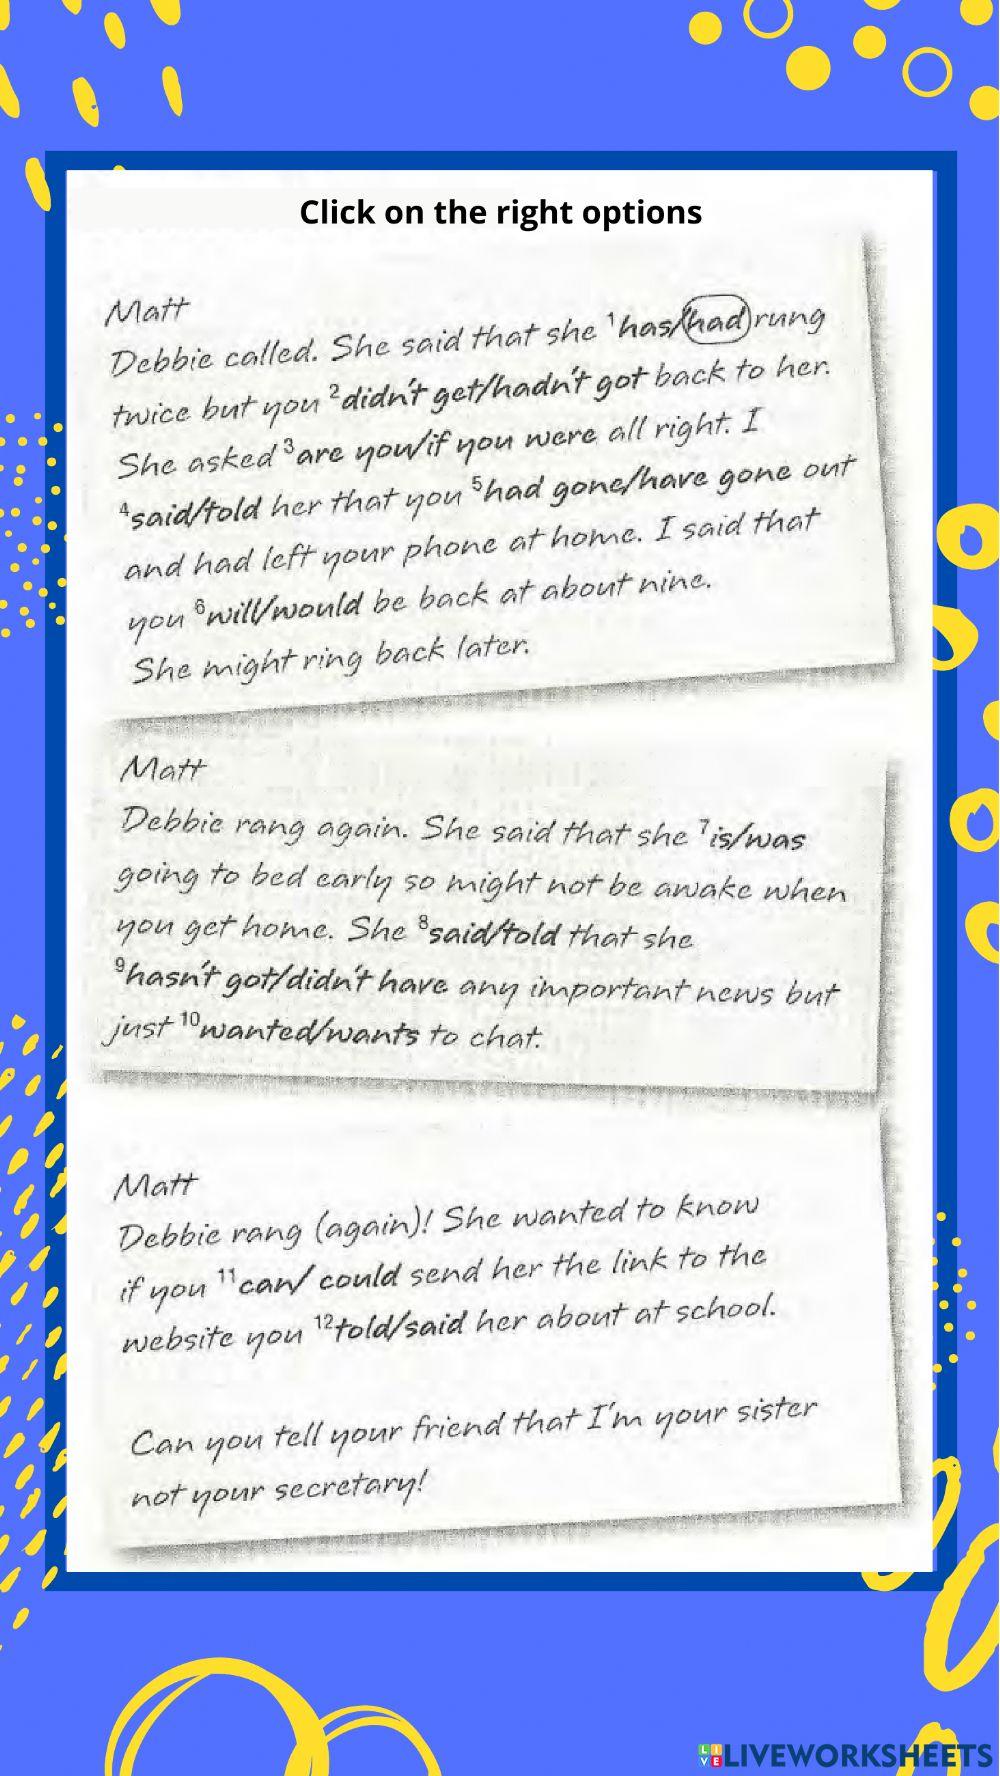 Click on the right options
Matt
Debbie called. She said that she ¹has/had rung
twice but you ²didn't get/hadn't got back to her.
She asked ³are you/if you were all right. I
⁴said/told her that you ⁵had gone/have gone out
and had left your phone at home. I said that
you ⁶will/would be back at about nine.
She might ring back later.
Matt
Debbie rang again. She said that she ⁷is/was
going to bed early so might not be awake when
you get home. She ⁸said/told that she
⁹hasn't got/didn't have any important news but
just ¹⁰wanted/wants to chat.
Matt
Debbie rang (again)! She wanted to know
if you ¹¹can/ could send her the link to the
website you ¹²told/said her about at school.
Can you tell your friend that I'm your sister
not your secretary!
LIVE LIVEWORKSHEETS